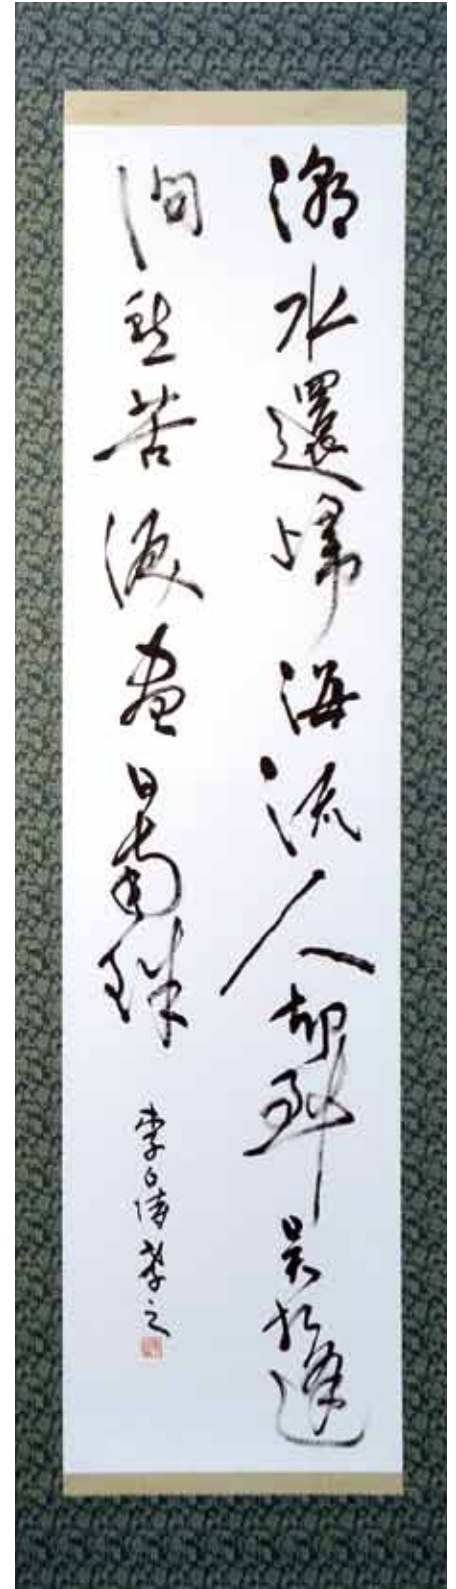 潮水還歸海流人却到吳相逢
問愁苦涙盡日南珠
李白詩